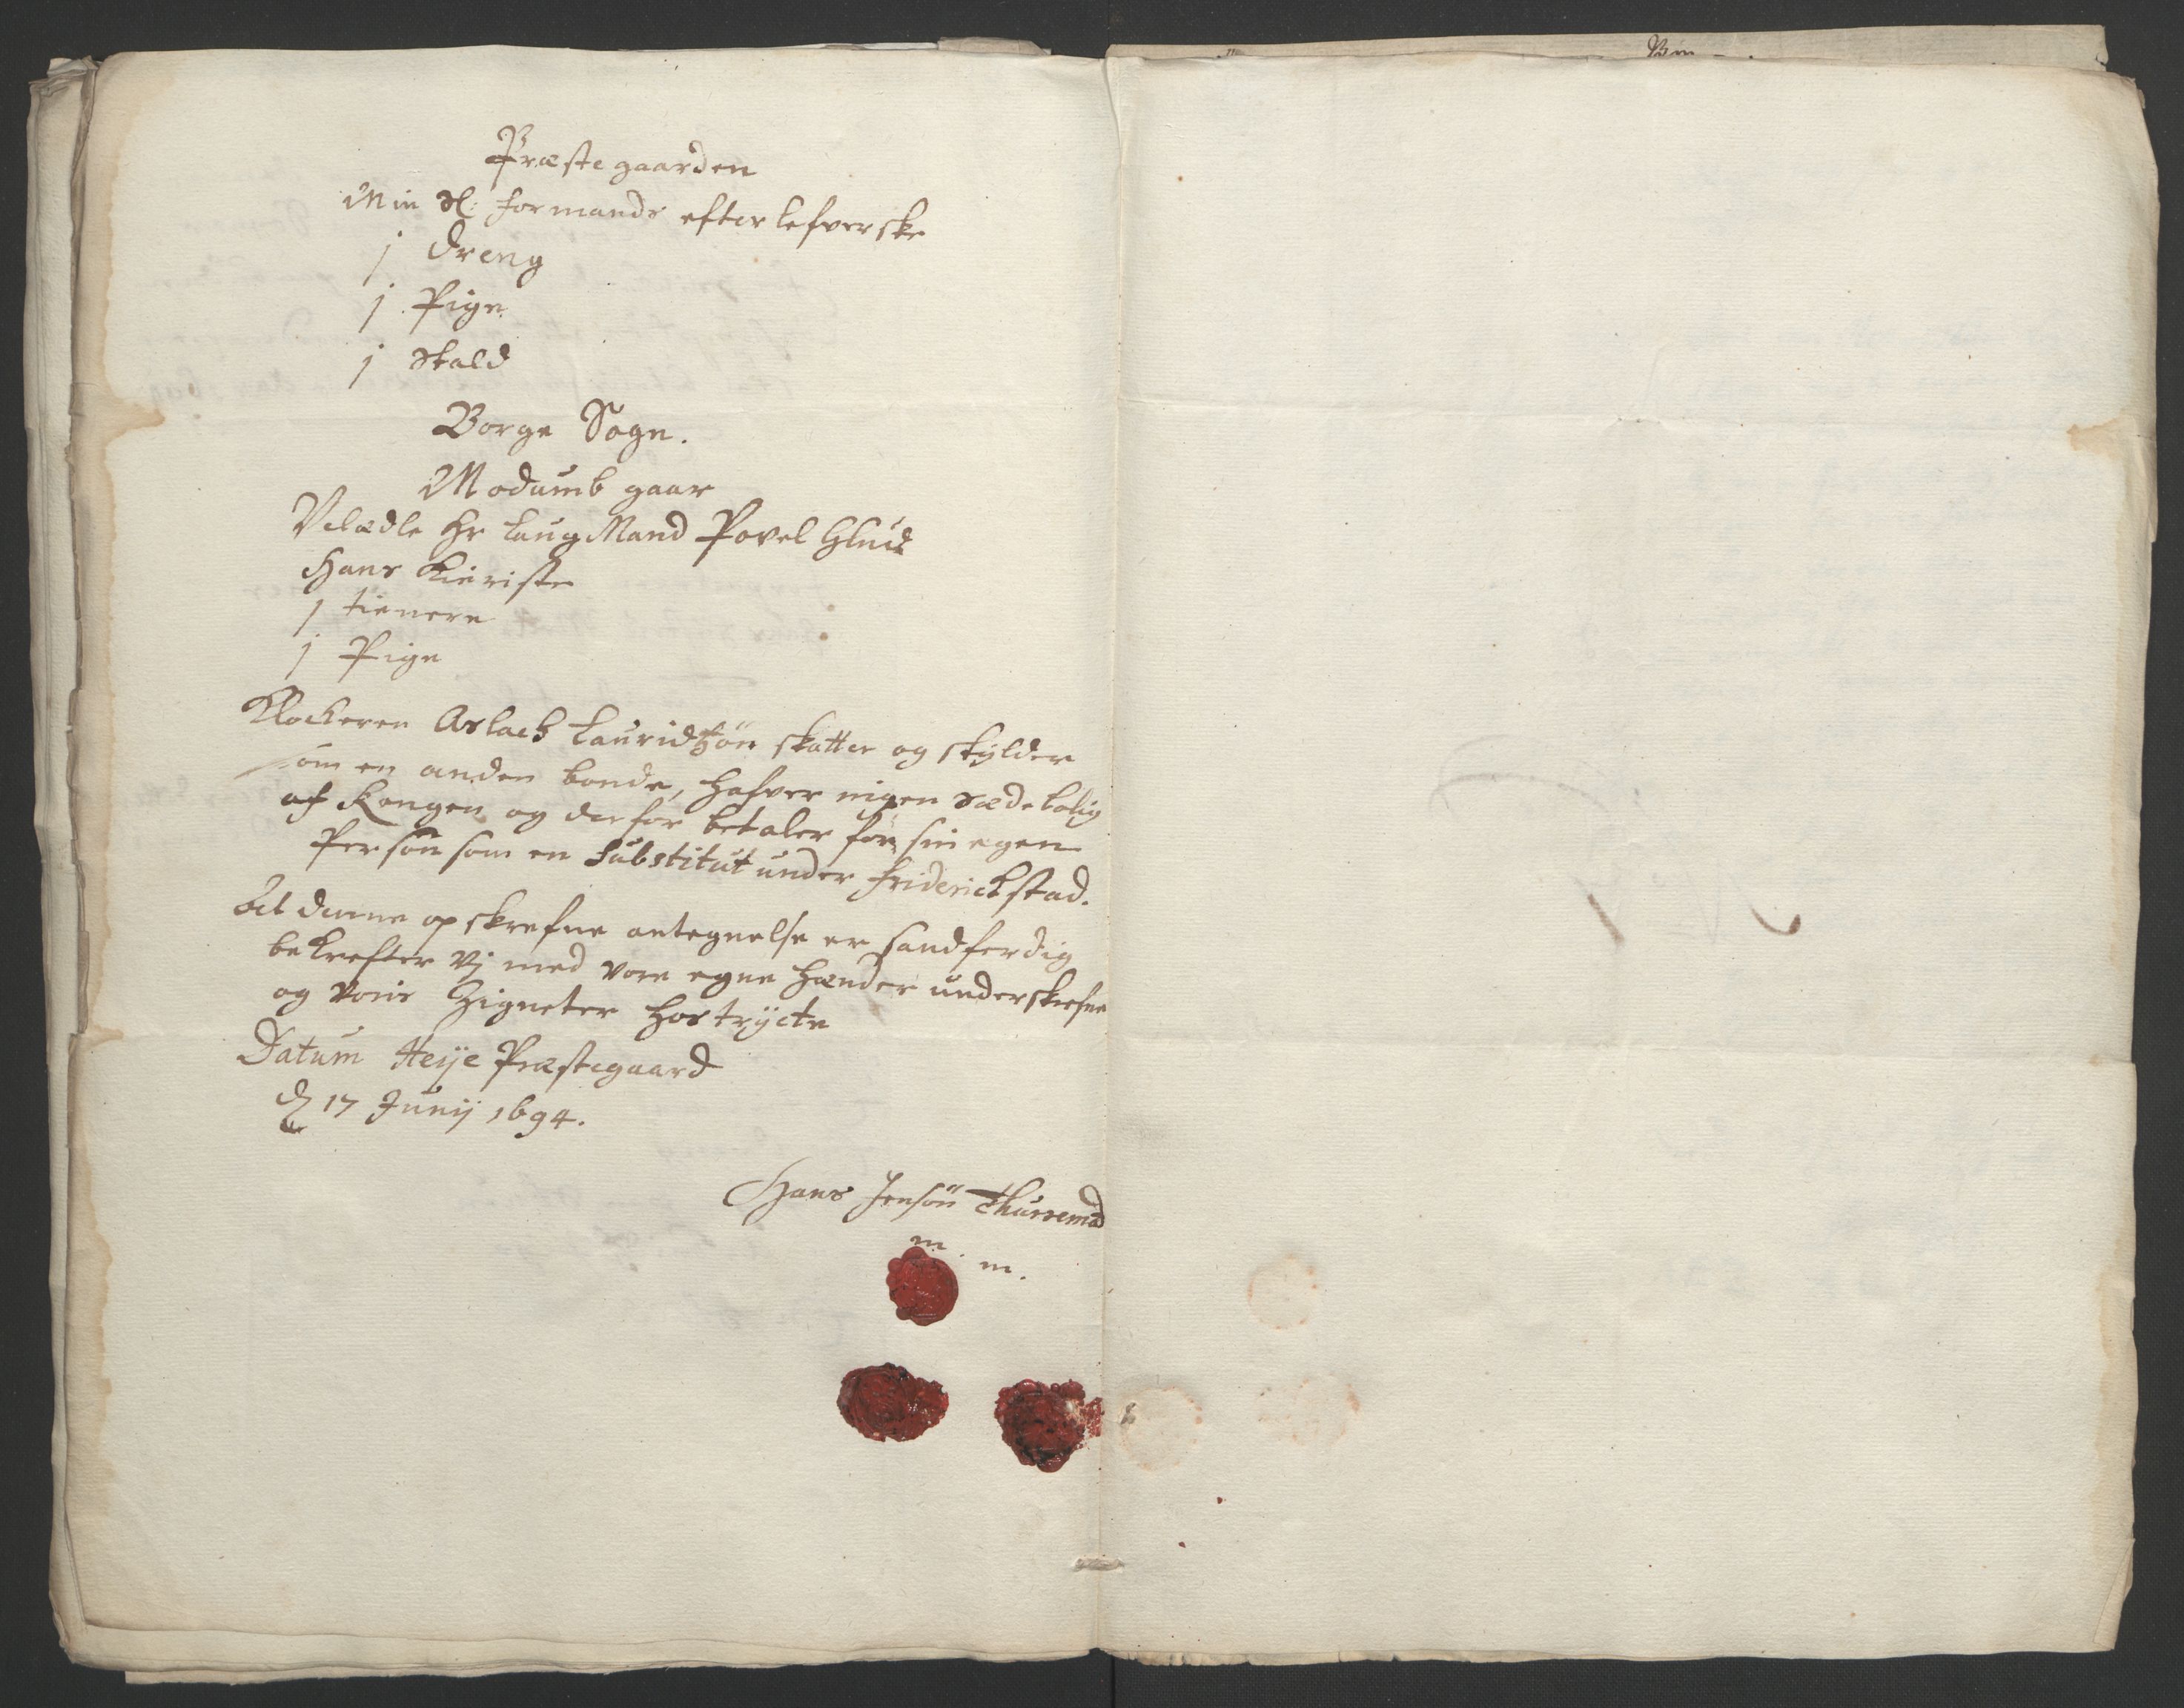 Præstegaarden
Min Sl: formands efterlefverske
1 Dreng
1 Pige
1 Stald
Borge Sogn.
Modumb gaar
Velædle Hr LaugMand Povel Glud
Hans Kieriste
1 tienere
1 Pige
Klockeren Aslack Lauridtzøn skatter og skylder
som en anden bonde, hafver ingen sædebolig
af Kongen og derfor betaler for sin egen
Person som en Substitut under Friderickstad.
At denne opskrefne antegnelse er sandferdig
bekrefter vj med vore egne hænder underskrefne
og voris Zigneter hostrycte
Datum Præstegaard
d 17 Junij 1694.
Hans Jensøn
m. m.